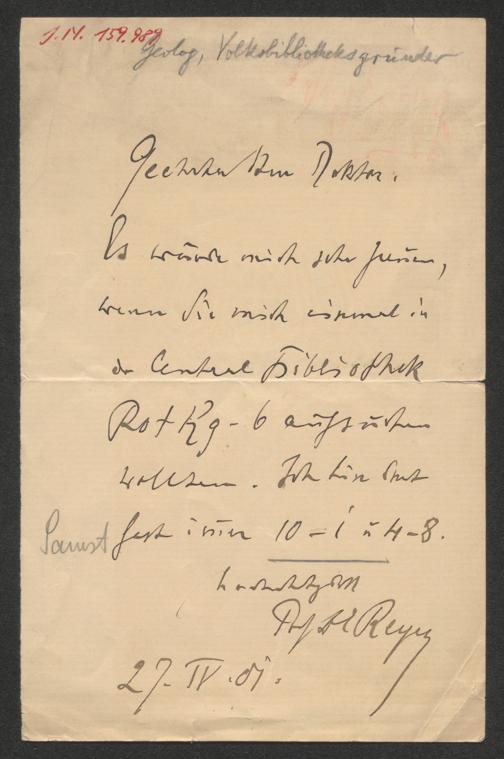 J.N. 159.989
Geolog, Volksbibliotheksgründer
Geehrter Herr Doktor.
Es würde mich sehr freuen,
wenn Sie mich einmal in
der Central Bibliothek
Rot Kg - 6 aufsuchen
wollten. Ich bin dort
fast immer 10 - 1 u 4 - 8.
hochachtgsvoll
Prof Dr E Reyer
27. IV. 01.